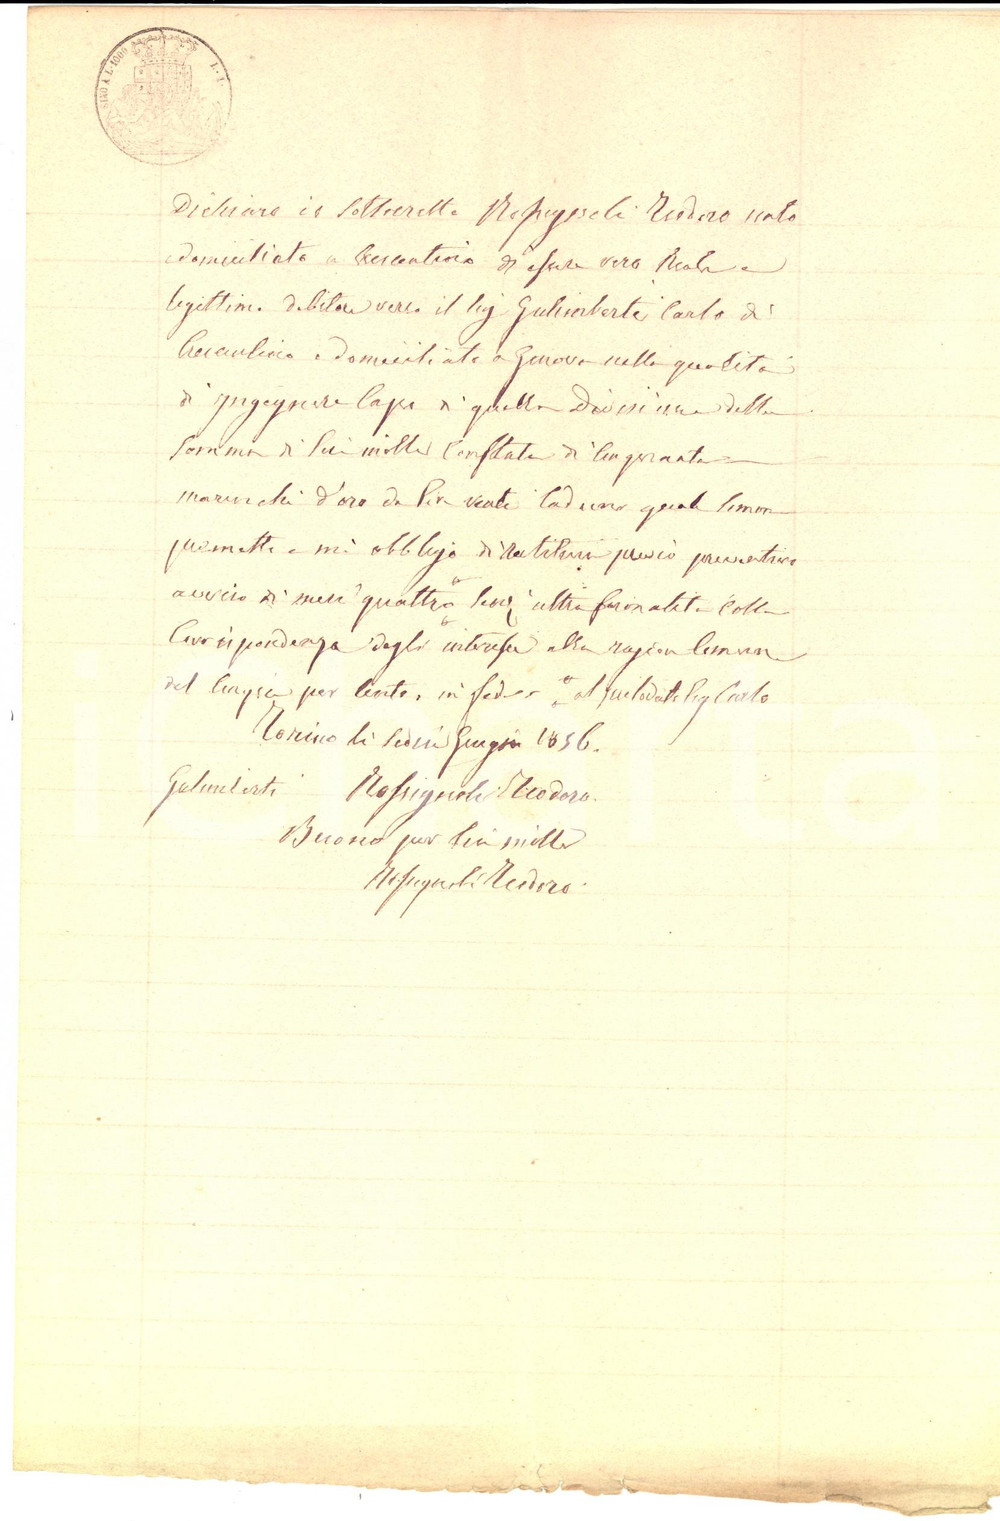 SINO A L. 1000 L. 1
Dichiaro io sottoscritto Rossignoli Teodoro nato
e domiciliato a Crescentino di essere vero Reale e
legittimo debitore verso il Sig Galimberti Carlo di
Crescentino e domiciliato a Genova nella qualità
di Ingegnere Capo di quella Divisione della
somma di Lire mille constata di cinquanta
marenghi d'oro da Lire venti caduno qual somma
prometto e mi obbligo di restituire previo preventivo
avviso di mesi quattro senz'altra formalità colla
Corrispondenza degli interessi alla ragion comune
del cinque per cento, in fede al prelodato Sig Carlo
Torino li sedici Giugno 1856.
Galimberti Rossignoli Teodoro.
Buono per Lire mille
Rossignoli Teodoro.